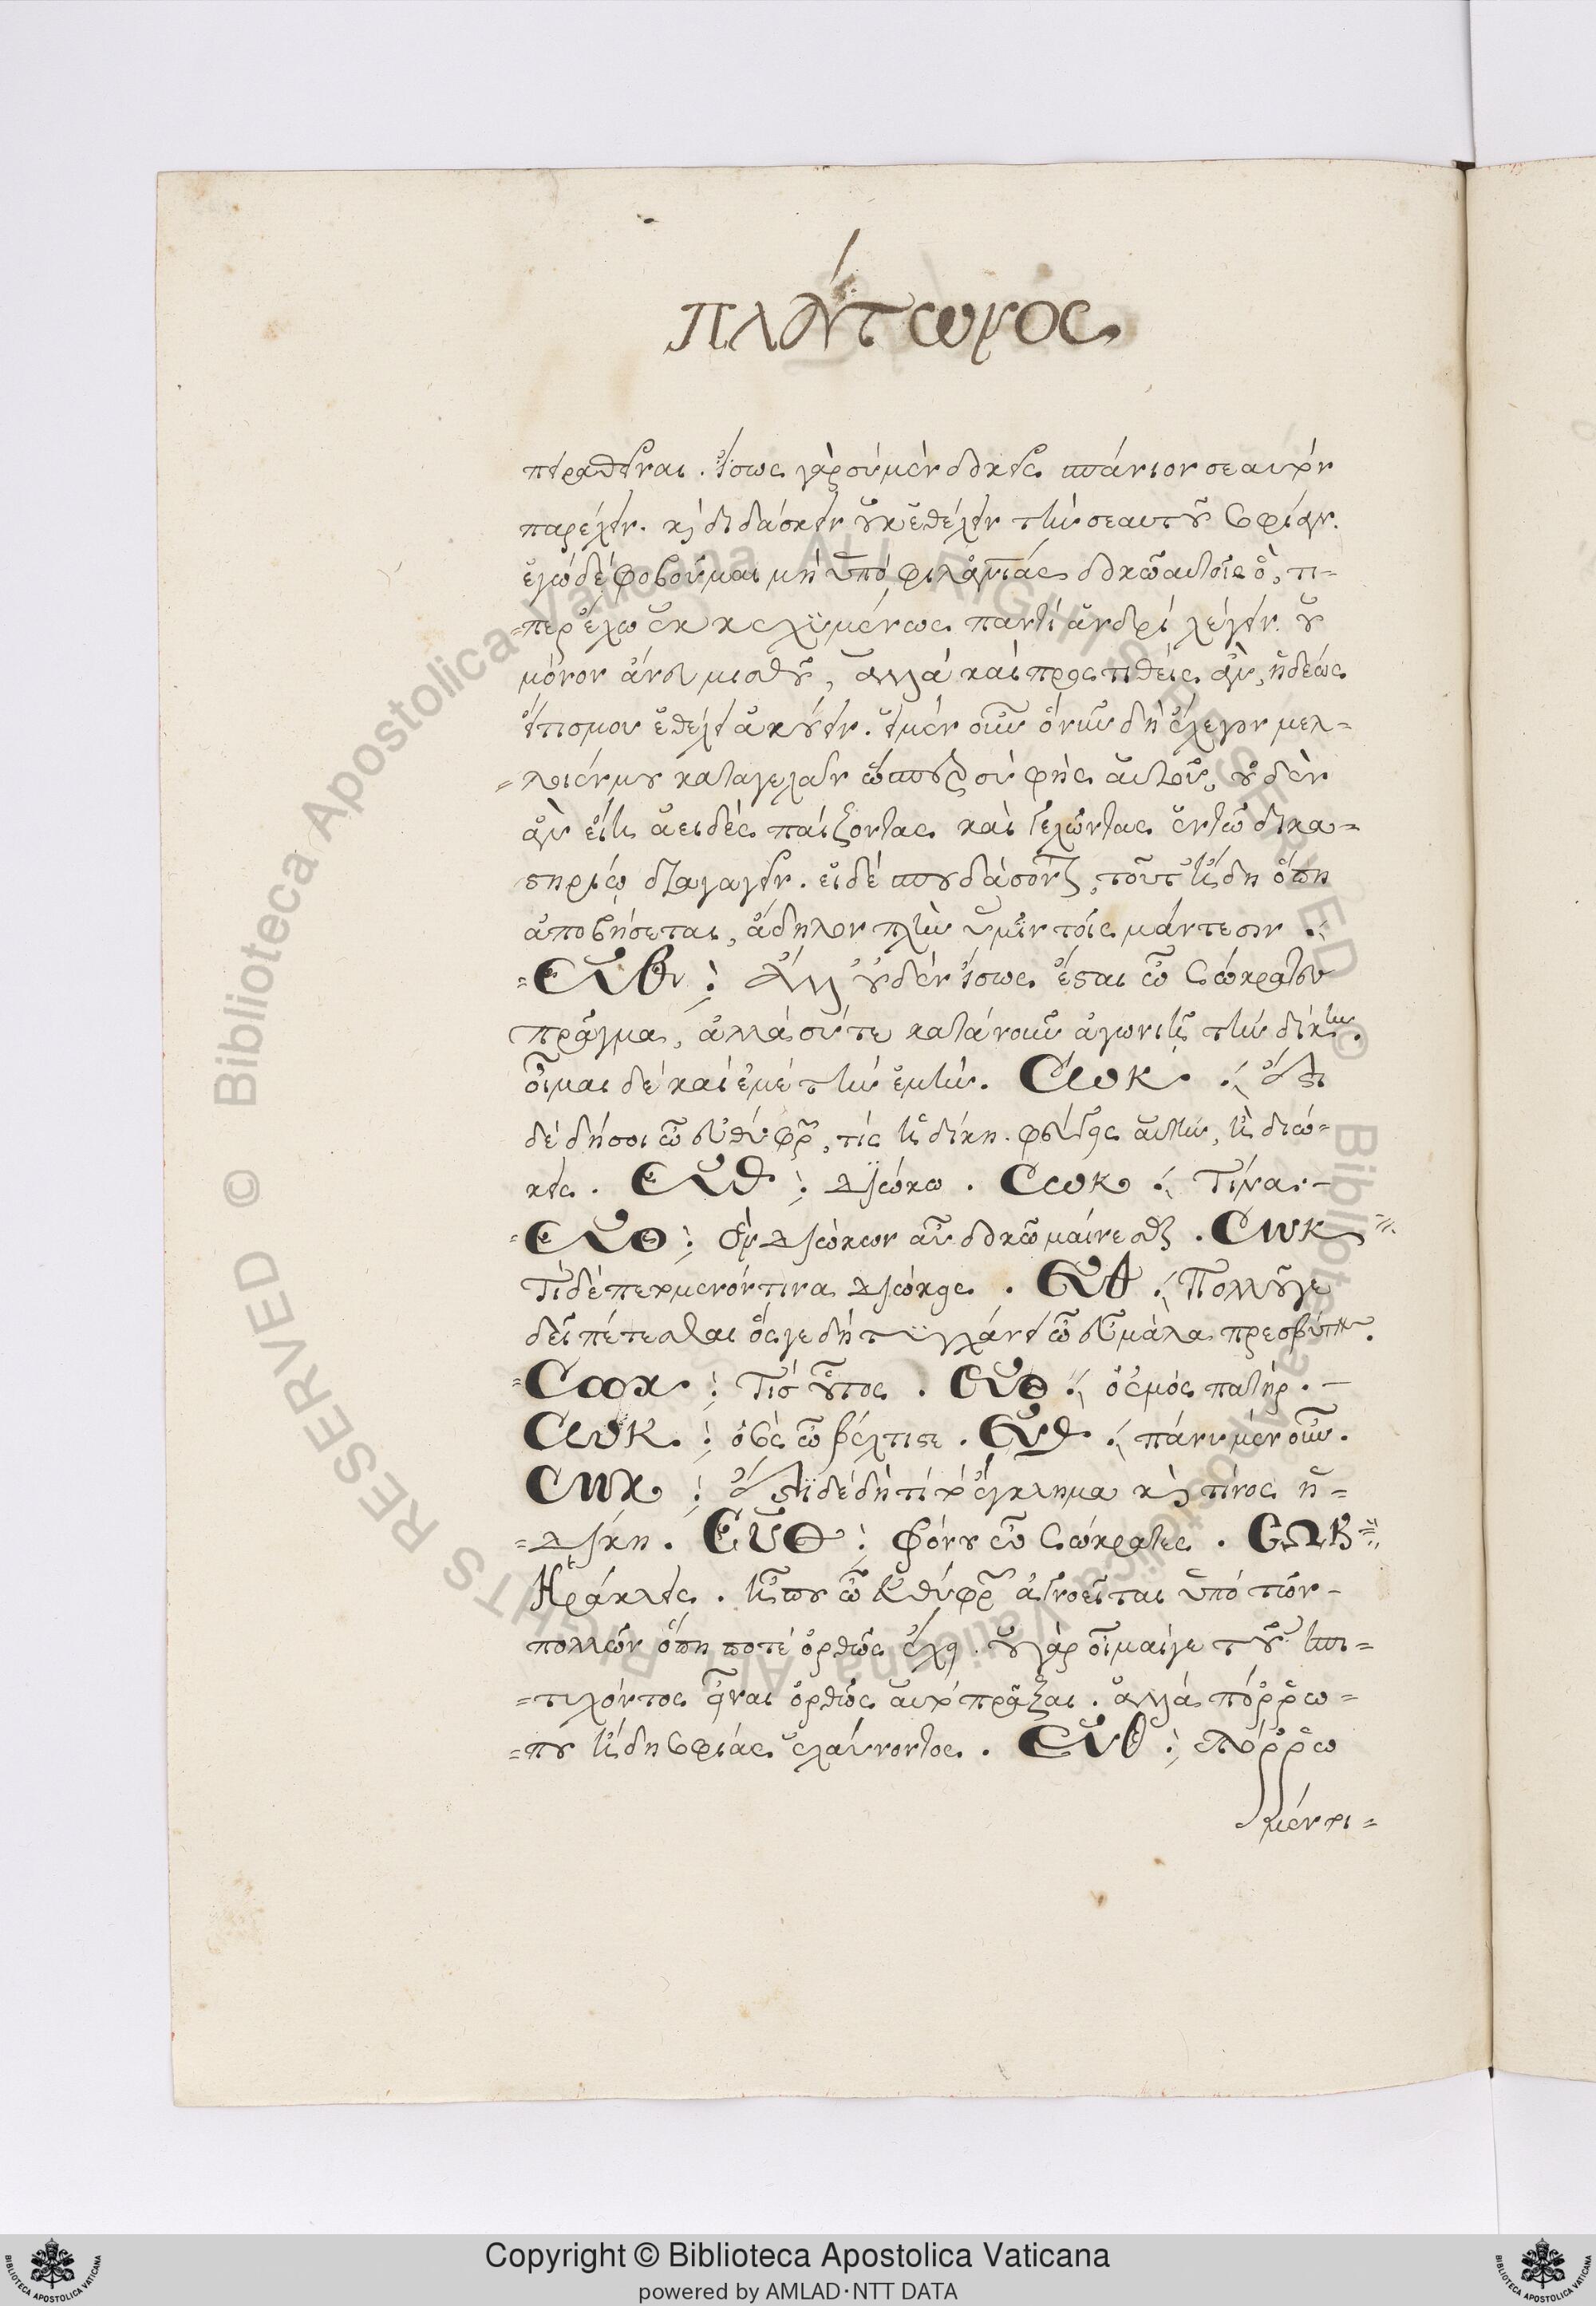 ΠΛΆΤΩΝΟΣ
πειραθῆναι. ἴσως γὰρ σὺ μὲν δοκεῖς σπάνιον σεαυτὸν
παρέχειν. καὶ διδάσκειν οὐκ ἐθέλειν τὴν σεαυτοῦ σοφίαν.
ἐγὼ δὲ φοβοῦμαι μὴ ὑπὸ φιλανθρωπίας δοκῶ αὐτοῖς ὅ, τι-
=περ ἔχω ἐκκεχυμένως παντὶ ἀνδρὶ λέγειν. οὐ
μόνον ἄνευ μισθοῦ, ἀλλὰ καὶ προστιθεὶς ἂν, ἡδέως
εἴτις μου ἐθέλει ἀκούειν. εἰ μὲν οὖν ὃ νῦν δὴ ἔλεγον μελ=
=λοιέν μου καταγελᾶν ὥσπερ σὺ φῂς αὐτοῦ, οὐδὲν
ἂν εἴη ἀειδὲς παίζοντας καὶ γελῶντας ἐν τῷ δικα=
στηρίῳ διαγαγεῖν. εἰ δὲ σπουδάσονται, τοῦτ' ἤδη ὅπη
ἀποβήσεται, ἄδηλον πλὴν ὑμῖν τοῖς μάντεσιν.
=ΕΥΘυ: Ἀλλ' οὐδὲν ἴσως ἔσται ὦ Σώκρατες
πρᾶγμα, ἀλλὰ σύ τε κατὰ νοῦν ἀγωνιῇ τὴν δίκην.
οἶμαι δὲ καὶ ἐμὲ τὴν ἐμήν. Σωκ. ἔστι
δὲ δή σοι ὦ εὐθύφρων, τίς ἡ δίκη. φεύγεις αὐτὴν, ἢ διώ=
κεις. ΕΥΘ: Διώκω. Σωκ: Τίνα.-
=ΕΥΘ: Ὃν διώκων αὖ δοκῶ μαίνεσθαι. Σωκ=
Τί δέ πετόμενόν τινα διώκεις. ΕΥΘ: Πολλοῦ γε
δεῖ πέτεσθαι ὅς γε δὴ τυγχάνει ὢν εὖ μάλα πρεσβύτης.
=Σωκ: Τίς οὗτος. ΕΥΘ: ὁ ἐμὸς πατήρ.-
Σωκ: ὁ σὸς ὦ βέλτιστε. ΕΥΘ: πάνυ μὲν οὖν.
Σωκ: ἔστι δὲ δὴ τί τὸ ἔγκλημα καὶ τίνος ἡ-
=δίκη. ΕΥΘ: Φόνου ὦ Σώκρατες. ΣΩΚ=
Ἡράκλεις. ἦ που ὦ Εὐθύφρων ἀγνοεῖται ὑπὸ τῶν-
πολλῶν ὅπη ποτὲ ὀρθῶς ἔχει. οὐ γὰρ οἶμαί γε τοῦ ἐπι=
=τυχόντος εἶναι ὀρθῶς αὐτὸ πρᾶξαι. ἀλλὰ πόῤῥω=
=που ἤδη σοφίας ἐλαύνοντος. ΕΥΘ: Πόῤῥω
μέντοι=
Copyright © Biblioteca Apostolica Vaticana
powered by AMLAD·NTT DATA